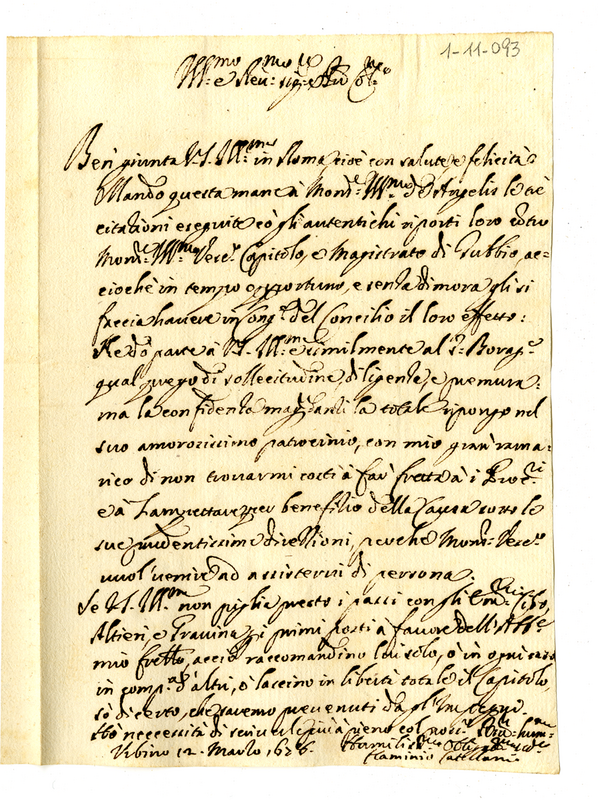 1-11-093
Ill:mo e Rev:mo Sig:re
Ben giunta V.S. Ill:ma in Roma cioè con salute, e felicità
Mando questa mane à Mons:re Ill:mo De Angelis le trè
citationi eseguite cò gli autentichi riporti loro còtro
Mons:re Ill:mo Vesc:o Capitolo, e Magistrato di Gubbio, ac=
cioché in tempo opportuno, e senza dimora gli si
faccia havere in Cong:ne del Concilio il loro effetto:
Ne dò parte à V.S. Ill:ma e similmente al S:r
qual prego di sollecitudine, diligenza, e premura:
ma la confidenza la totale ripongo nel
suo amorosissimo patrocinio, con mio gran rama=
rico di non trovarmi costì à far fretta à i
e à per benefitio della Causa sotto le
sue prudentissime direttioni, perche Mons:re Vesc:o
vuol venire ad assistervi di persona.
Se V.S. Ill:ma non piglia presto i passi con gli Em:mi Cibo,
Altieri, e Gravina p i primi posti à favore dell'
mio fratello, acciò raccomandino lui solo, ò in ogni caso
in comp:a d'altri, ò laccino in libertà totale il Capitolo,
sò di certo, che saremo prevenuti da gl'
necessità di scriverle più à pieno col
Urbino 12. Marzo 1676.
Flaminio Catellani